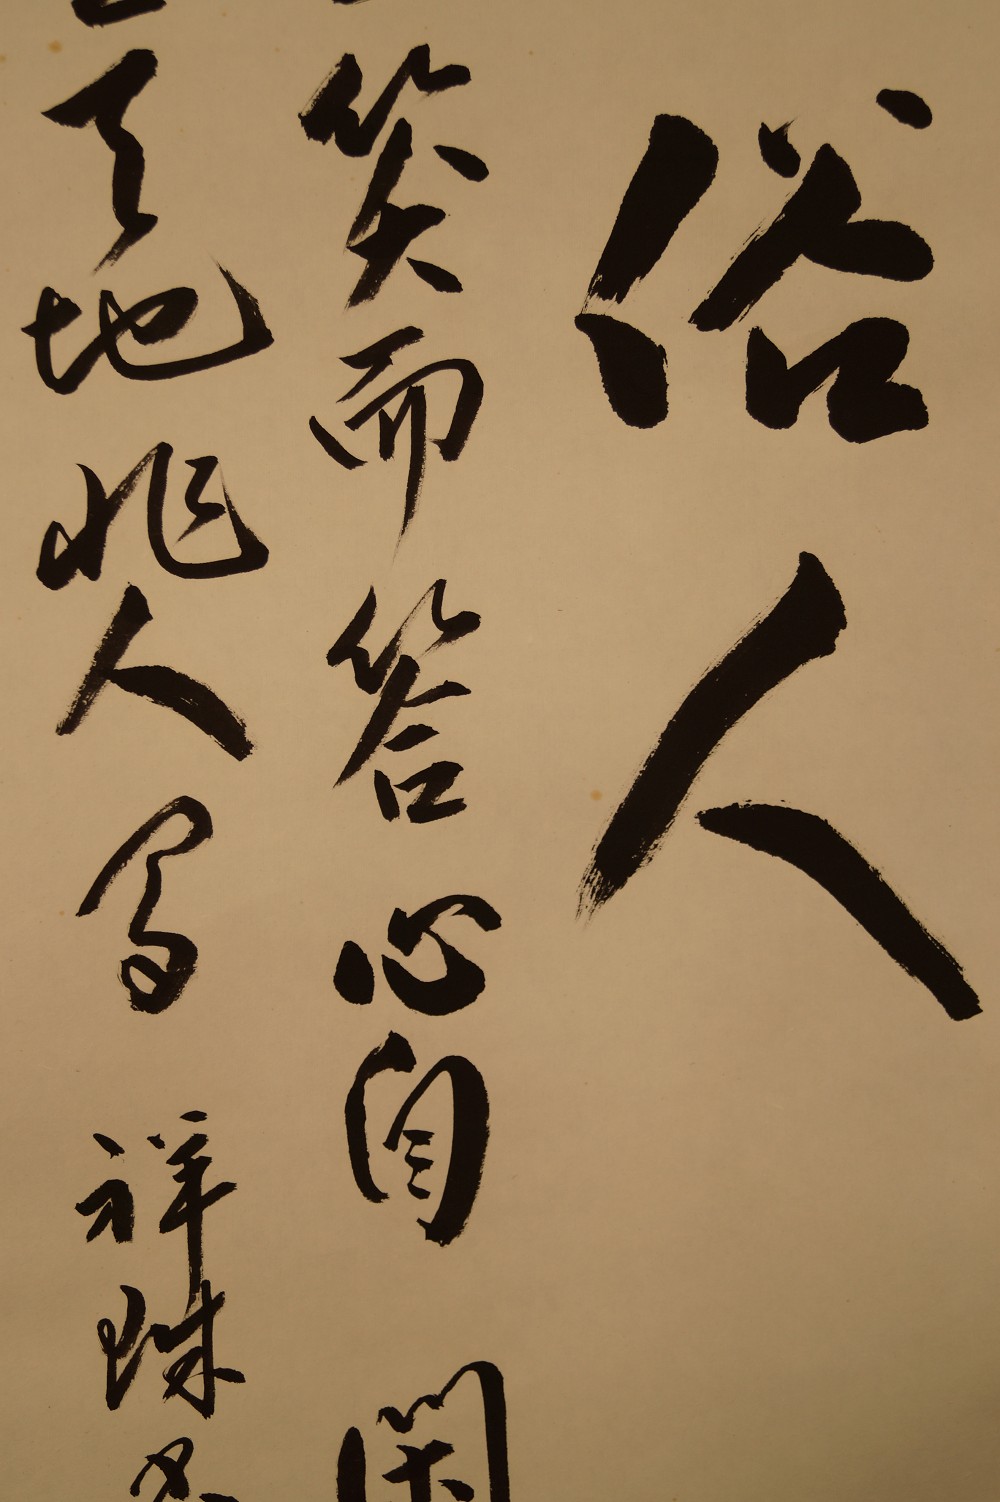 俗人
笑而答心自閑
天地非人間 祥珠